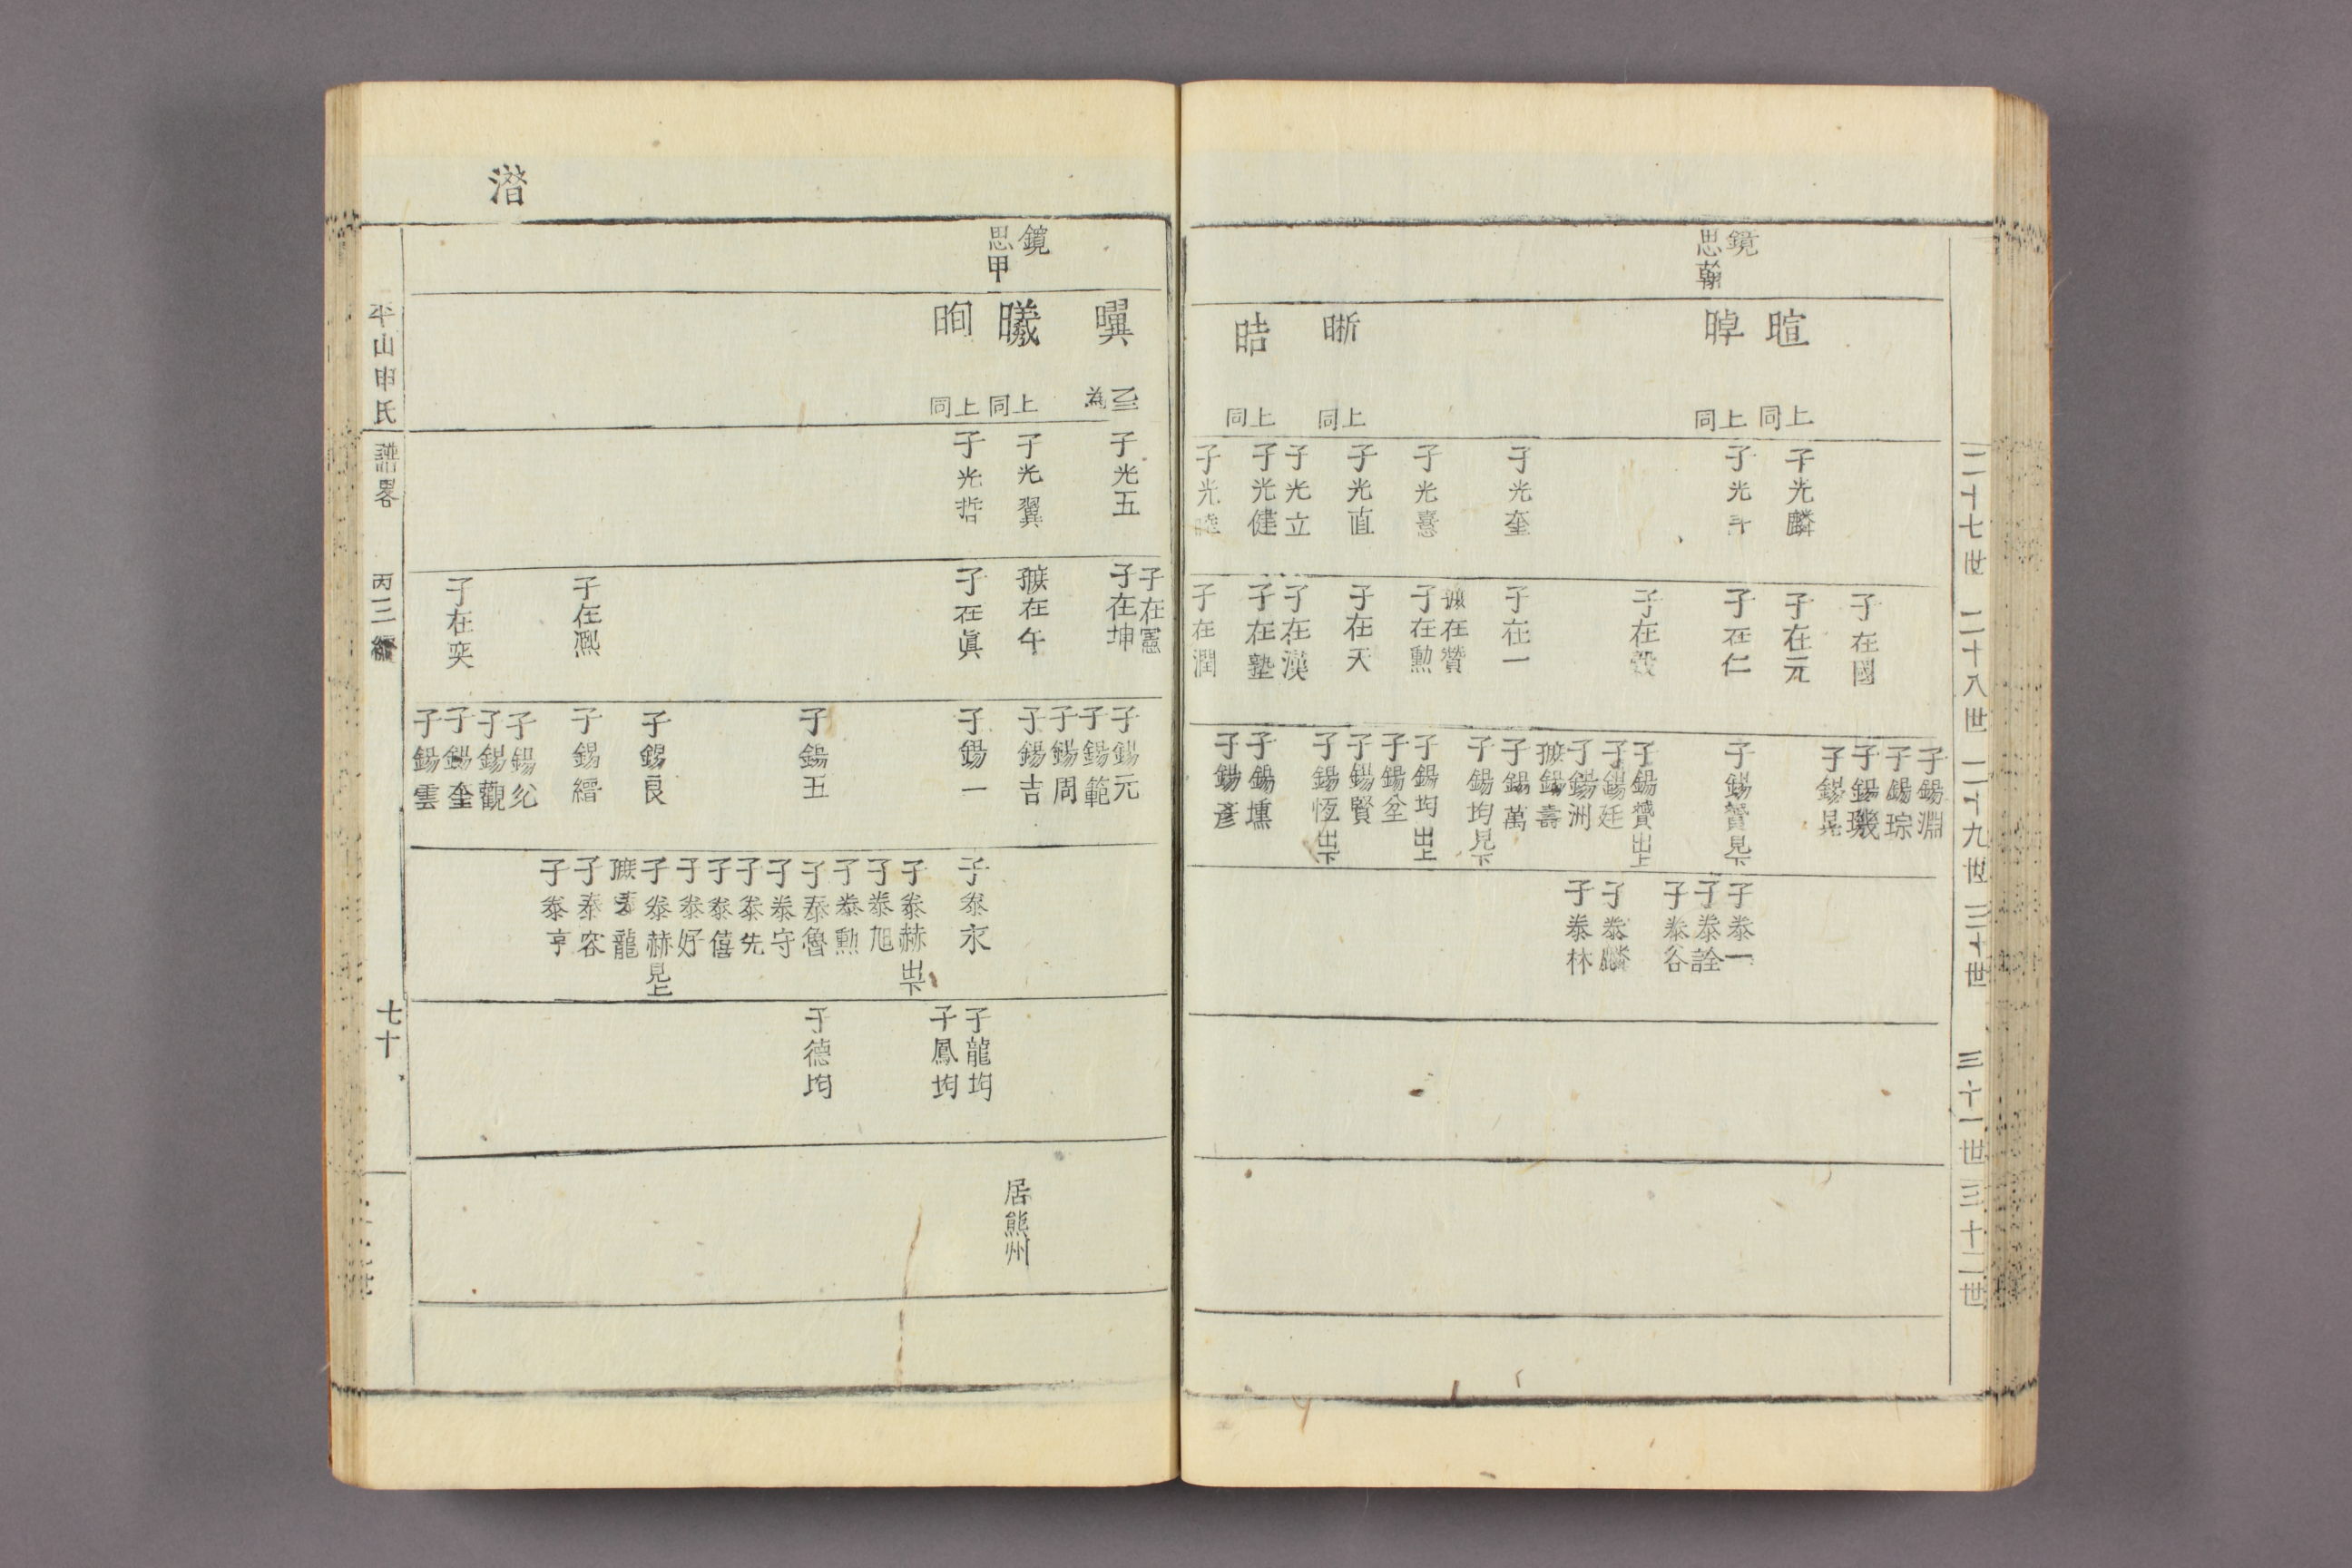 二十七世
二十八世
二十九世
三十世
三十一世
三十二世
鏡
思翰
暄
上同
晫
上同
晣
上同
晧
上同
子光麟
子光
子光奎
子光憙
子光直
子光立
子光健
子光
子在國
子在元
子在仁
子在毅
子在一
在贊
子在勲
子在天
子在漢
子在塾
子在潤
子錫淵
子錫琮
子錫璣
子錫晃
子錫贊見下
子錫贊出上
子錫廷
子錫洲
錫壽
子錫萬
子錫均見下
子錫均出上
子錫全
子錫賢
子錫恆出下
子錫壎
子錫彥
子泰一
子泰詮
子泰谷
子泰麟
子泰林
鏡
思甲
曮
為
曦
上同
眴
上同
子光五
子光翼
子光哲
子在憲
子在坤
在午
子在眞
子在熙
子在奕
子錫元
子錫範
子錫周
子錫吉
子錫一
子錫五
子錫良
子錫縉
子錫
子錫觀
子錫奎
子錫雲
子泰永
子泰赫出下
子泰旭
子泰勲
子泰魯
子泰守
子泰先
子泰僖
子泰好
子泰赫見上
泰龍
子泰容
子泰亨
子龍均
子鳳均
子德均
居熊州
潽
平山申氏
譜畧
丙三編
七十